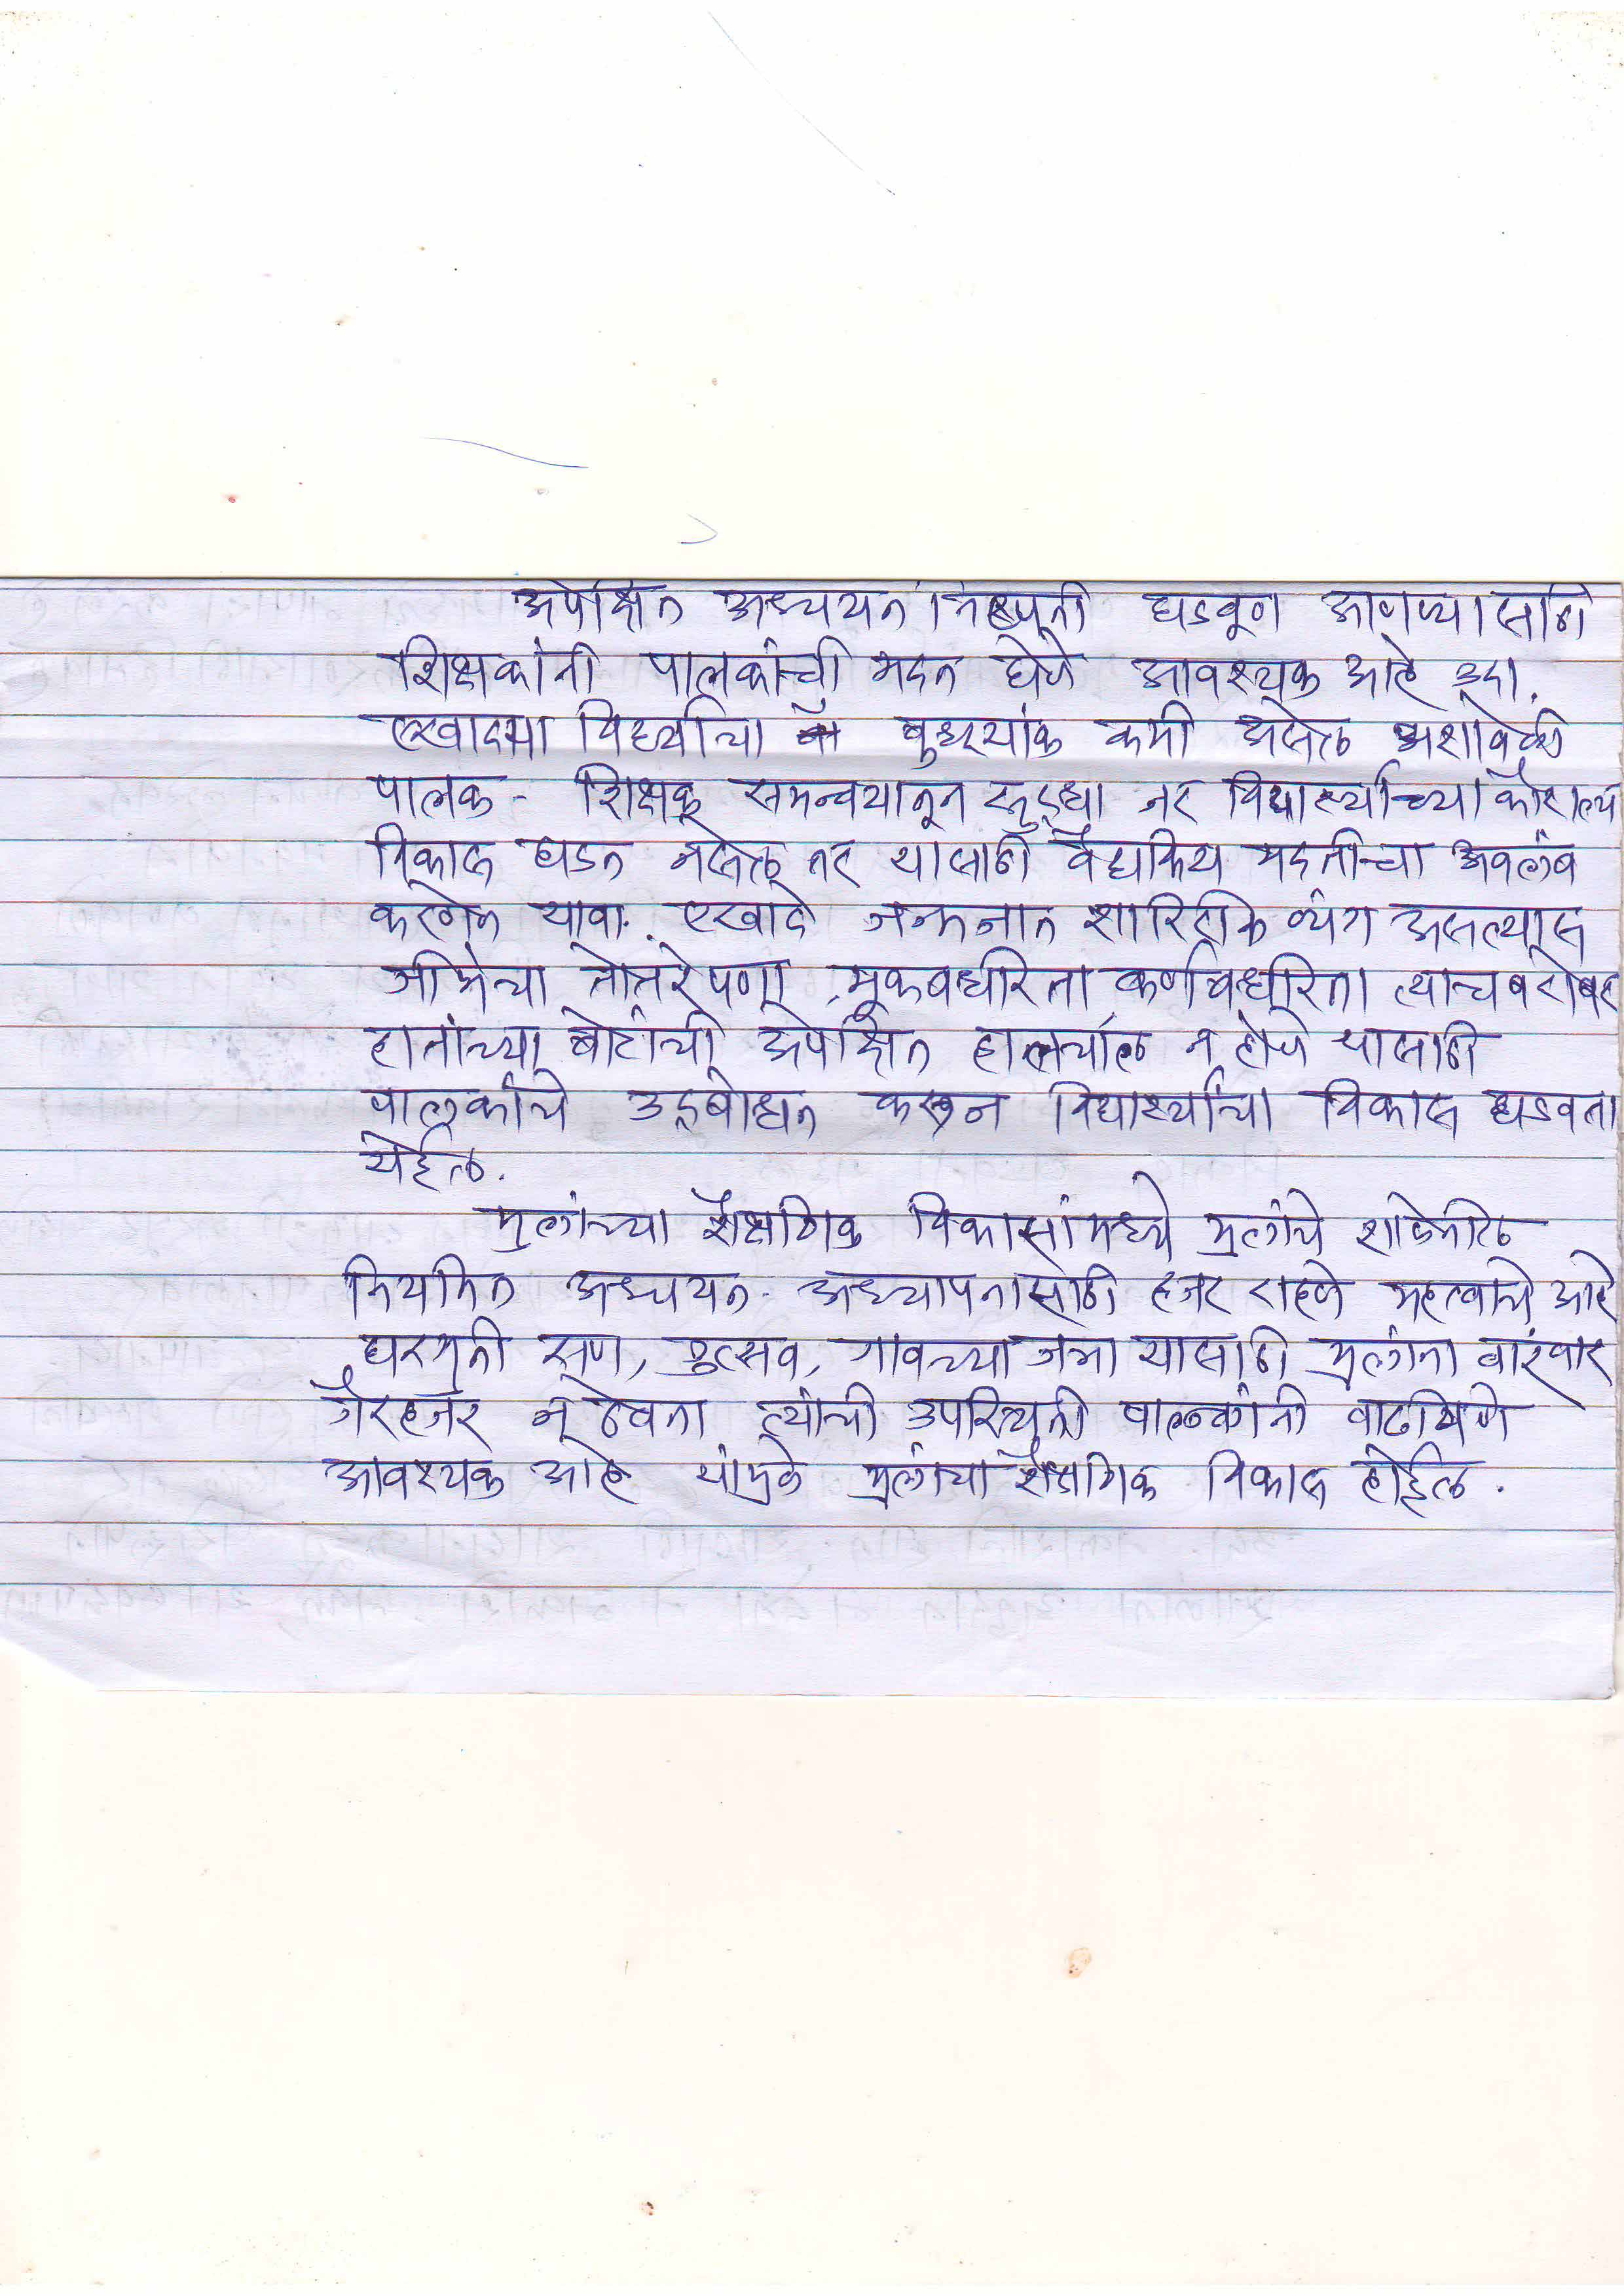 अपेक्षित अध्ययन निष्पत्ती घडवूण आणण्यासाठी
शिक्षकांनी पालकांची मदत घेणे आवश्यक आहे उदा.
एखादया विद्यर्थ्याचा बुध्यांक कमी असेल अशावेळी
पालक - शिक्षक समन्वयातून सुद्धा जर विद्यार्थ्याच्या कौशल्य
विकास घडत नसेल तर यासाठी वैद्यकिय मदतीचा अवलंब
करणेत यावा. एखादे जन्मजात शारिरीक व्यंग असल्यास
जीभेचा तोतरेपणा, मूकबधीरता कर्णबधीरता त्याचबरोबर
हातांच्या बोटांची अपेक्षित हालचाल न होणे यासाठी
पालकांचे उद्बोधन करून विद्यार्थ्याचा विकास घडवता
येईल.
मुलांच्या शैक्षणिक विकासांमध्ये मुलांचे शाळेतील
नियमित अध्ययन - अध्यापनासाठी हजर राहणे महत्वाचे आहे
घरगुती सण, उत्सव, गावच्या जत्रा यासाठी मुलांना वारंवार
गैरहजर न ठेवता त्यांची उपस्थिती पालकांनी वाढविणे
आवश्यक आहे यांमुळे मुलांचा शैक्षणिक विकास होईल.